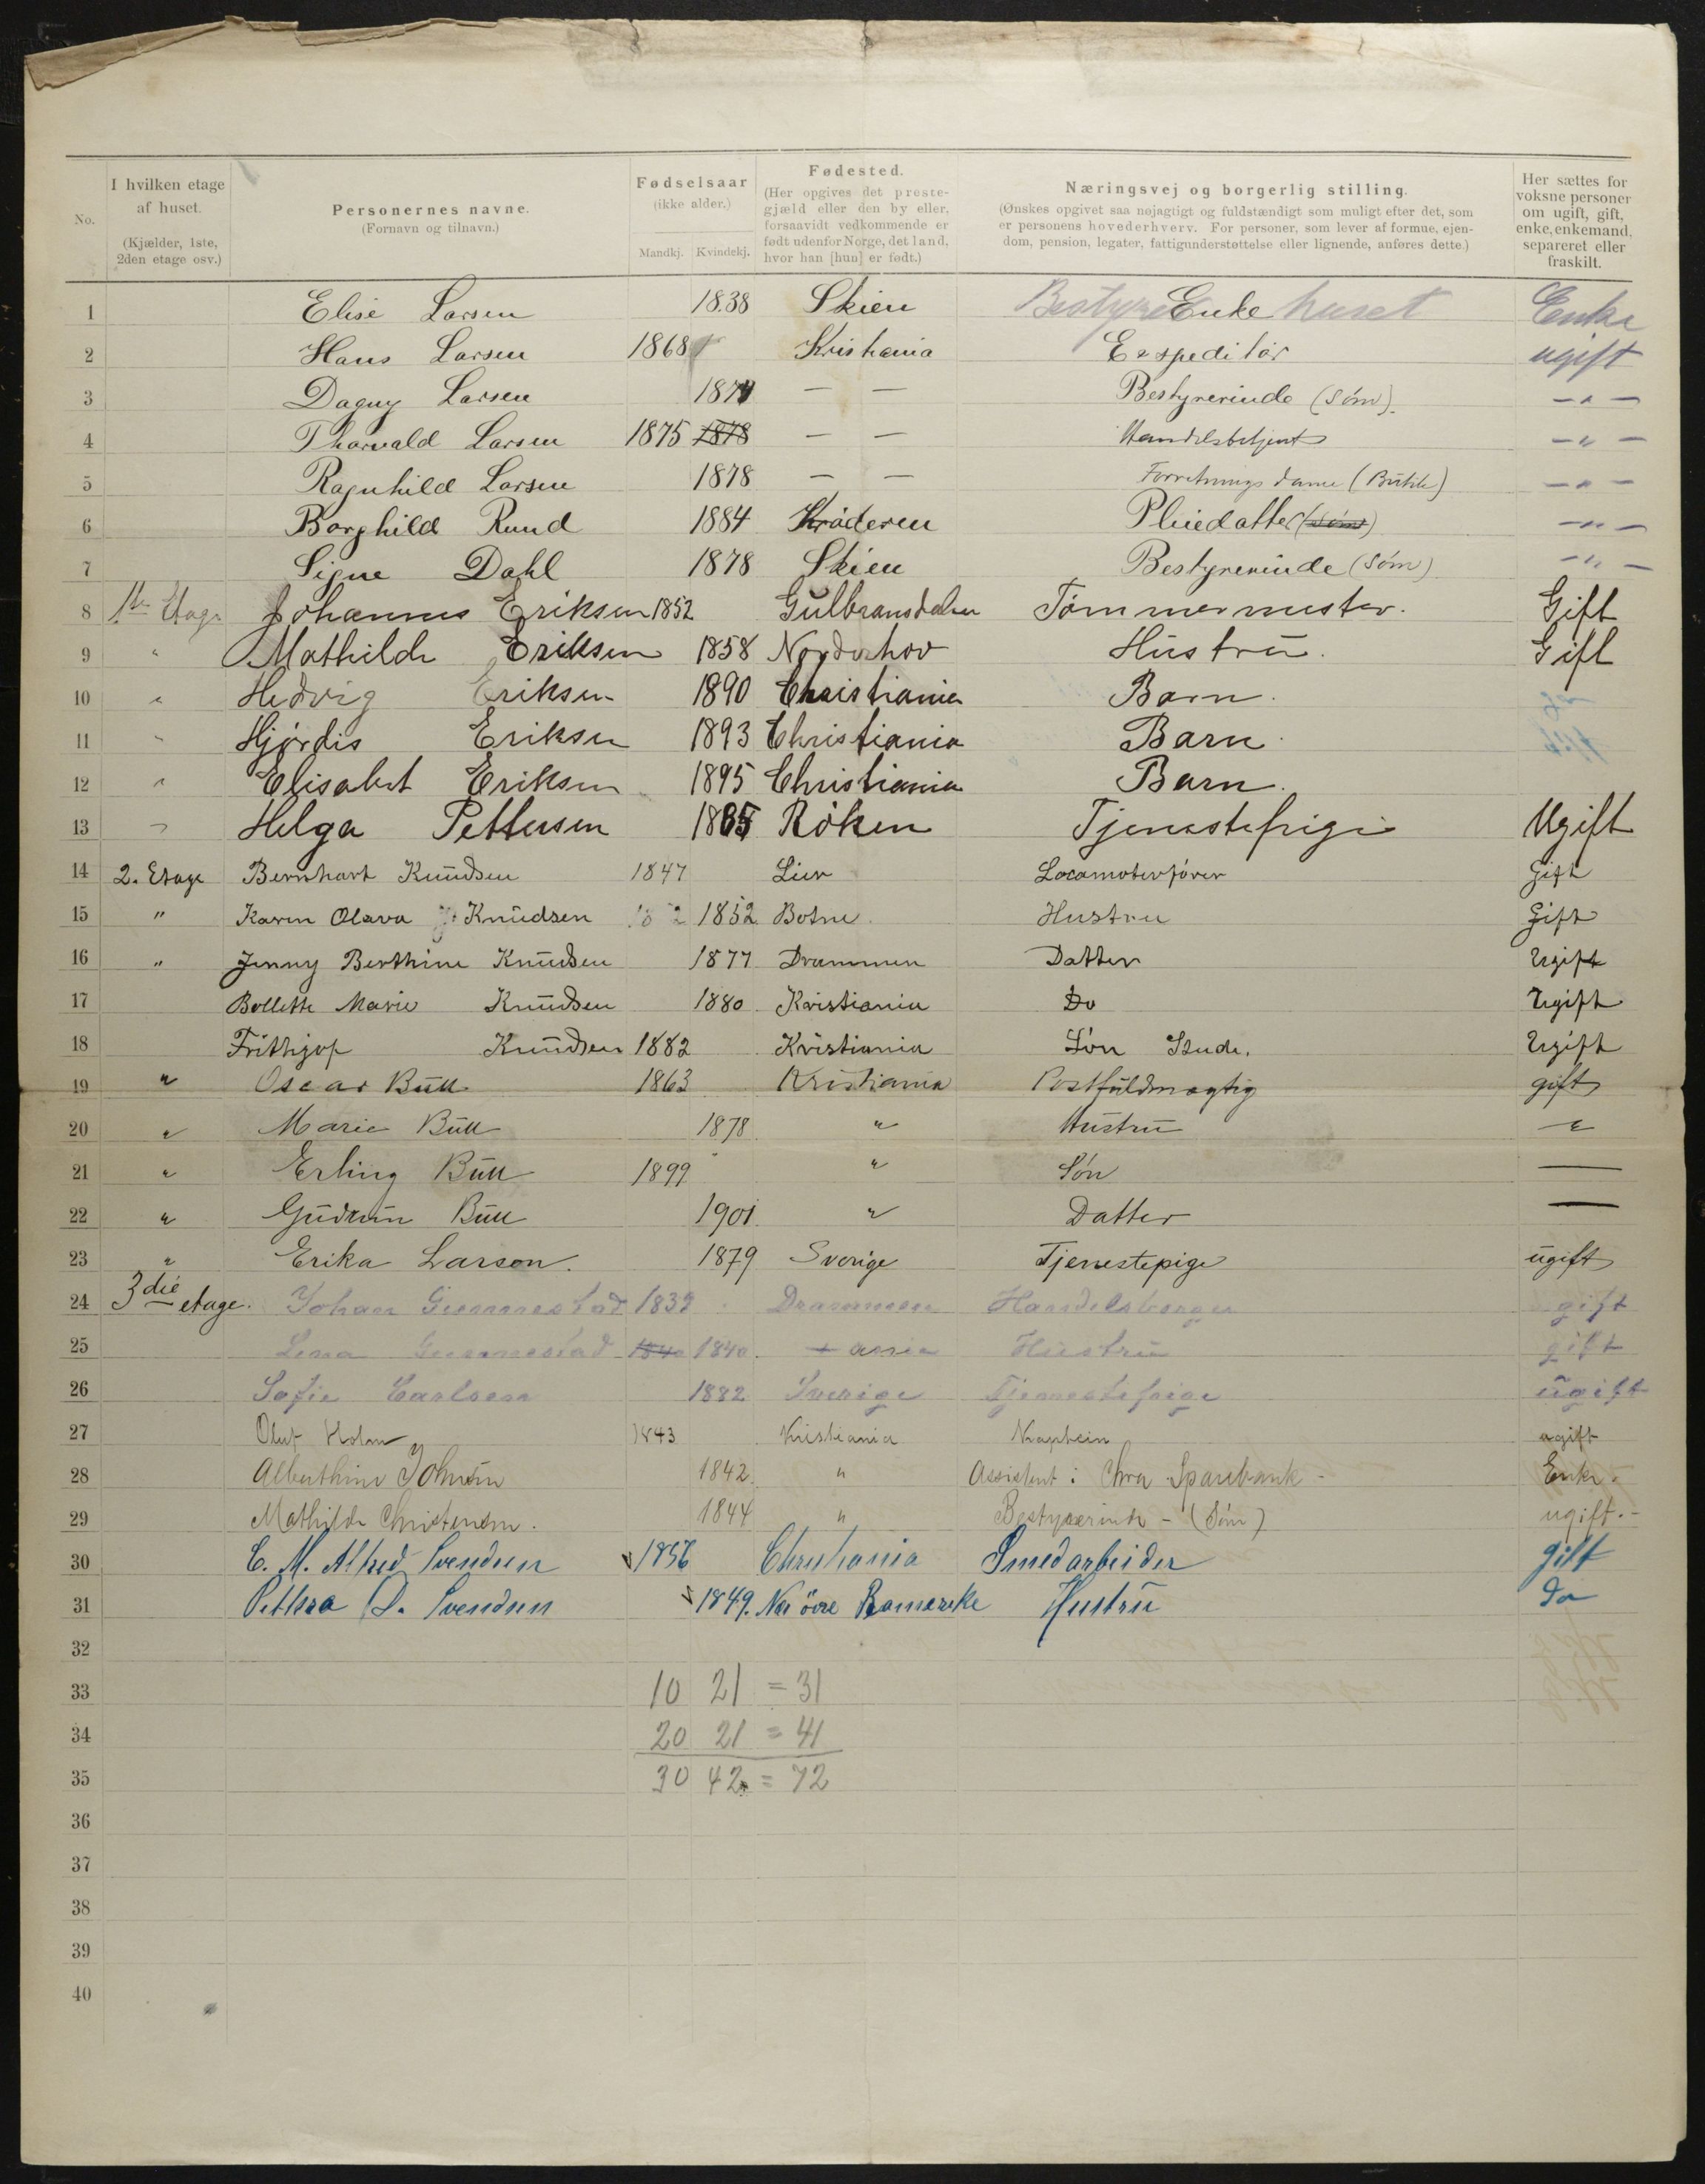 No.
I hvilken etage af huset. (Kjælder, 1ste, 2den etage osv.)
Personernes navne. (Fornavn og tilnavn.)
Fødselsaar (ikke alder.) Mandkj. Kvindekj.
Fødested. (Her opgives det preste-gjæld eller den by eller, forsaavidt vedkommende er født udenfor Norge, det land, hvor han [hun] er født.)
Næringsvej og borgerlig stilling. (Ønskes opgivet saa nøjagtigt og fuldstændigt som muligt efter det, som er personens hovederhverv. For personer, som lever af formue, ejendom, pension, legater, fattigunderstøttelse eller lignende, anføres dette.)
Her sættes for voksne personer om ugift, gift, enke, enkemand, separeret eller fraskilt.
1 Elise Larsen 1838 Skien Bestyrer Enke huset Enke
2 Hans Larsen 1868 Kristiania Expeditør ugift
3 Dagny Larsen — — Bestyrerinde (Søm). — " —
4 Thorvald Larsen 1875 1878 — — Handelsbetjent — " —
5 Ragnhild Larsen 1878 — — Forretningsdame (Butik) — " —
6 Borghild Rund 1884 Krøderen Pleiedatter (Søm) — " —
7 Signe Dahl 1878 Skien Bestyrerinde (Søm) — " —
8 1ste Etage Johannes Eriksen 1852 Gulbransdalen Tømmermester. Gift
9 " Mathilde Eriksen 1858 Norderhov Hustru. Gift
10 " Hedvig Eriksen 1890 Christiania Barn.
11 " Hjørdis Eriksen 1893 Christiania Barn.
12 " Elisabet Eriksen 1895 Christiania Barn.
13 " Helga Pettersen 1885 Røken Tjenestepige Ugift
14 2. Etage Bernhart Knudsen 1847 Lier Locomotivfører Gift
15 " Karen Olava Knudsen 1852 Botne. Hustru Gift
16 " Jenny Berthine Knudsen 1877 Drammen Datter Ugift
17 Bollette Marie Knudsen 1880 Kristiania Do Ugift
18 Frithjof Knudsen 1882 Kristiania Søn Stude. Ugift
19 " Oscar Bull 1863 Kristiania Postfuldmægtig gift
20 " Marie Bull 1878 " Hustru "
21 " Erling Bull 1899 " Søn —
22 " Gudrun Bull 1901 " Datter —
23 " Erika Larson. 1879 Sverige Tjenestepige ugift
24 3die etage. Johan Gunnestad 1839 Drammen Handelsborger gift
25 Lena Gunnestad 1840 1840. Hustru gift
26 Sofie Carlsen 1882 Sverige Tjenestepige ugift
27 Oluf Holm 1843 Kristiania Kaptein ugift
28 Alberthine Johnsen 1842. " Assistent i Chra Sparebank - Enke.
29 Mathilde Christensen. 1844 " Bestyrerinde - (Søm) ugift. -
30 C. M. Alfred Svendsen 1856 Christiania Smedarbeider gift
31 Pethra D. Svendsen 1849. Nes øvre Romerike Hustru do
32
33 10 21 = 31
34 20 21 = 41
35 30 42 = 72
36
37
38
39
40